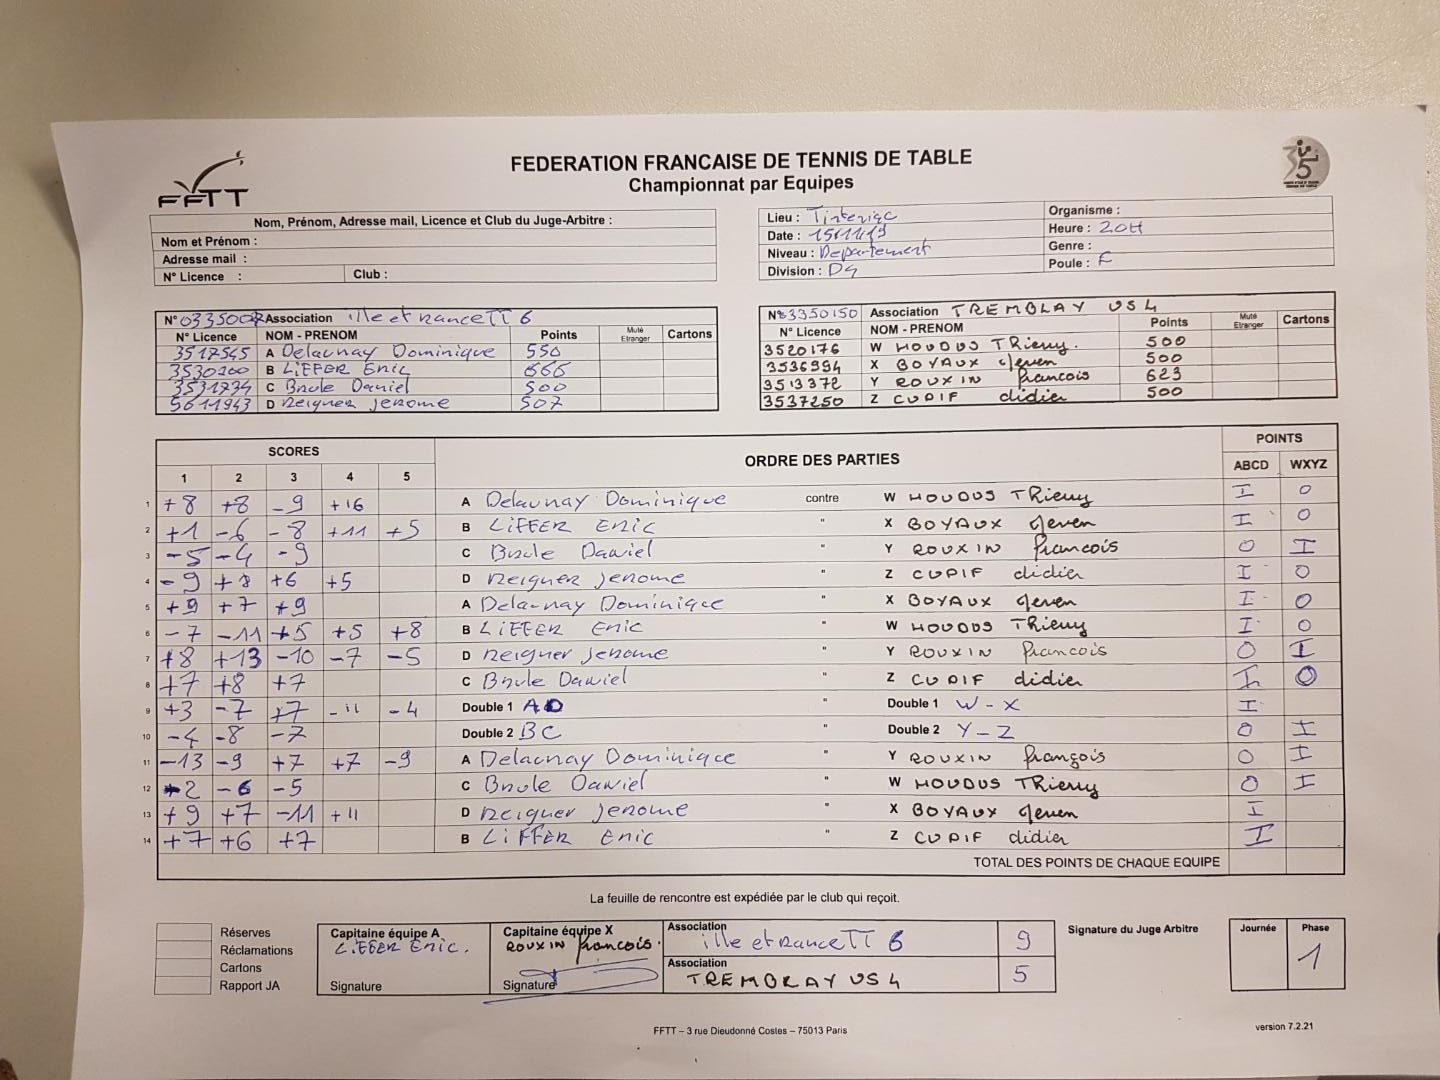 FEDERATION FRANCAISE DE TENNIS DE TABLE
Championnat par Equipes
FFTT
Nom, Prénom, Adresse mail, Licence et Club du Juge-Arbitre :
Nom et Prénom :
Adresse mail :
N° Licence : Club :
Lieu : Organisme :
Date : 15/11/19 Heure : 20H
Niveau : Departement Genre :
Division : D4 Poule : F
N° Association ille et rance TT 6
N° Licence NOM - PRENOM Points Muté Etranger Cartons
3517545 A Delaunay Dominique 550
3530200 B LiFFER Eric 666
3531734 C Brule Daniel 500
5611943 D Reigner jerome 507
N° 03350150 Association TREMBLAY US 4
N° Licence NOM - PRENOM Points Muté Etranger Cartons
3520176 W HOUDUS THierry. 500
3536994 X BOYAUX 500
3513372 Y ROUXIN francois 623
3537250 Z CUPIF didier 500
SCORES ORDRE DES PARTIES POINTS
1 2 3 4 5 ABCD WXYZ
1 +8 +8 -9 +16 A Delaunay Dominique contre W HOUDUS THierry I 0
2 +1 -6 -8 +11 +5 B LiFFER Eric " X BOYAUX I 0
3 -5 -4 -9 C Brule Daniel " Y ROUXIN francois 0 I
4 -9 +8 +6 +5 D Reigner jerome " Z CUPIF didier I 0
5 +9 +7 +9 A Delaunay Dominique " X BOYAUX I 0
6 -7 -11 +5 +5 +8 B LiFFER Eric " W HOUDUS THierry I 0
7 +8 +13 -10 -7 -5 D Reigner jerome " Y ROUXIN francois 0 I
8 +7 +8 +7 C Brule Daniel " Z CUPIF didier I 0
9 +3 -7 +7 -11 -4 Double 1 AD " Double 1 W-X I
10 -4 -8 -7 Double 2 BC " Double 2 Y-Z 0 I
11 -13 -9 +7 +7 -9 A Delaunay Dominique " Y ROUXIN françois 0 I
12 -2 -6 -5 C Brule Daniel " W HOUDUS THierry 0 I
13 +9 +7 -11 +11 D Reigner jerome " X BOYAUX I
14 +7 +6 +7 B LiFFER Eric " Z CUPIF didier I
TOTAL DES POINTS DE CHAQUE EQUIPE
La feuille de rencontre est expédiée par le club qui reçoit.
Réserves
Réclamations
Cartons
Rapport JA
Capitaine équipe A
LiFFER Eric.
Signature
Capitaine équipe X
ROUXIN francois.
Signature
Association
ille et rance TT 6 9
Association
TREMBLAY US 4 5
Signature du Juge Arbitre
Journée Phase
1
FFTT – 3 rue Dieudonné Costes – 75013 Paris
version 7.2.21